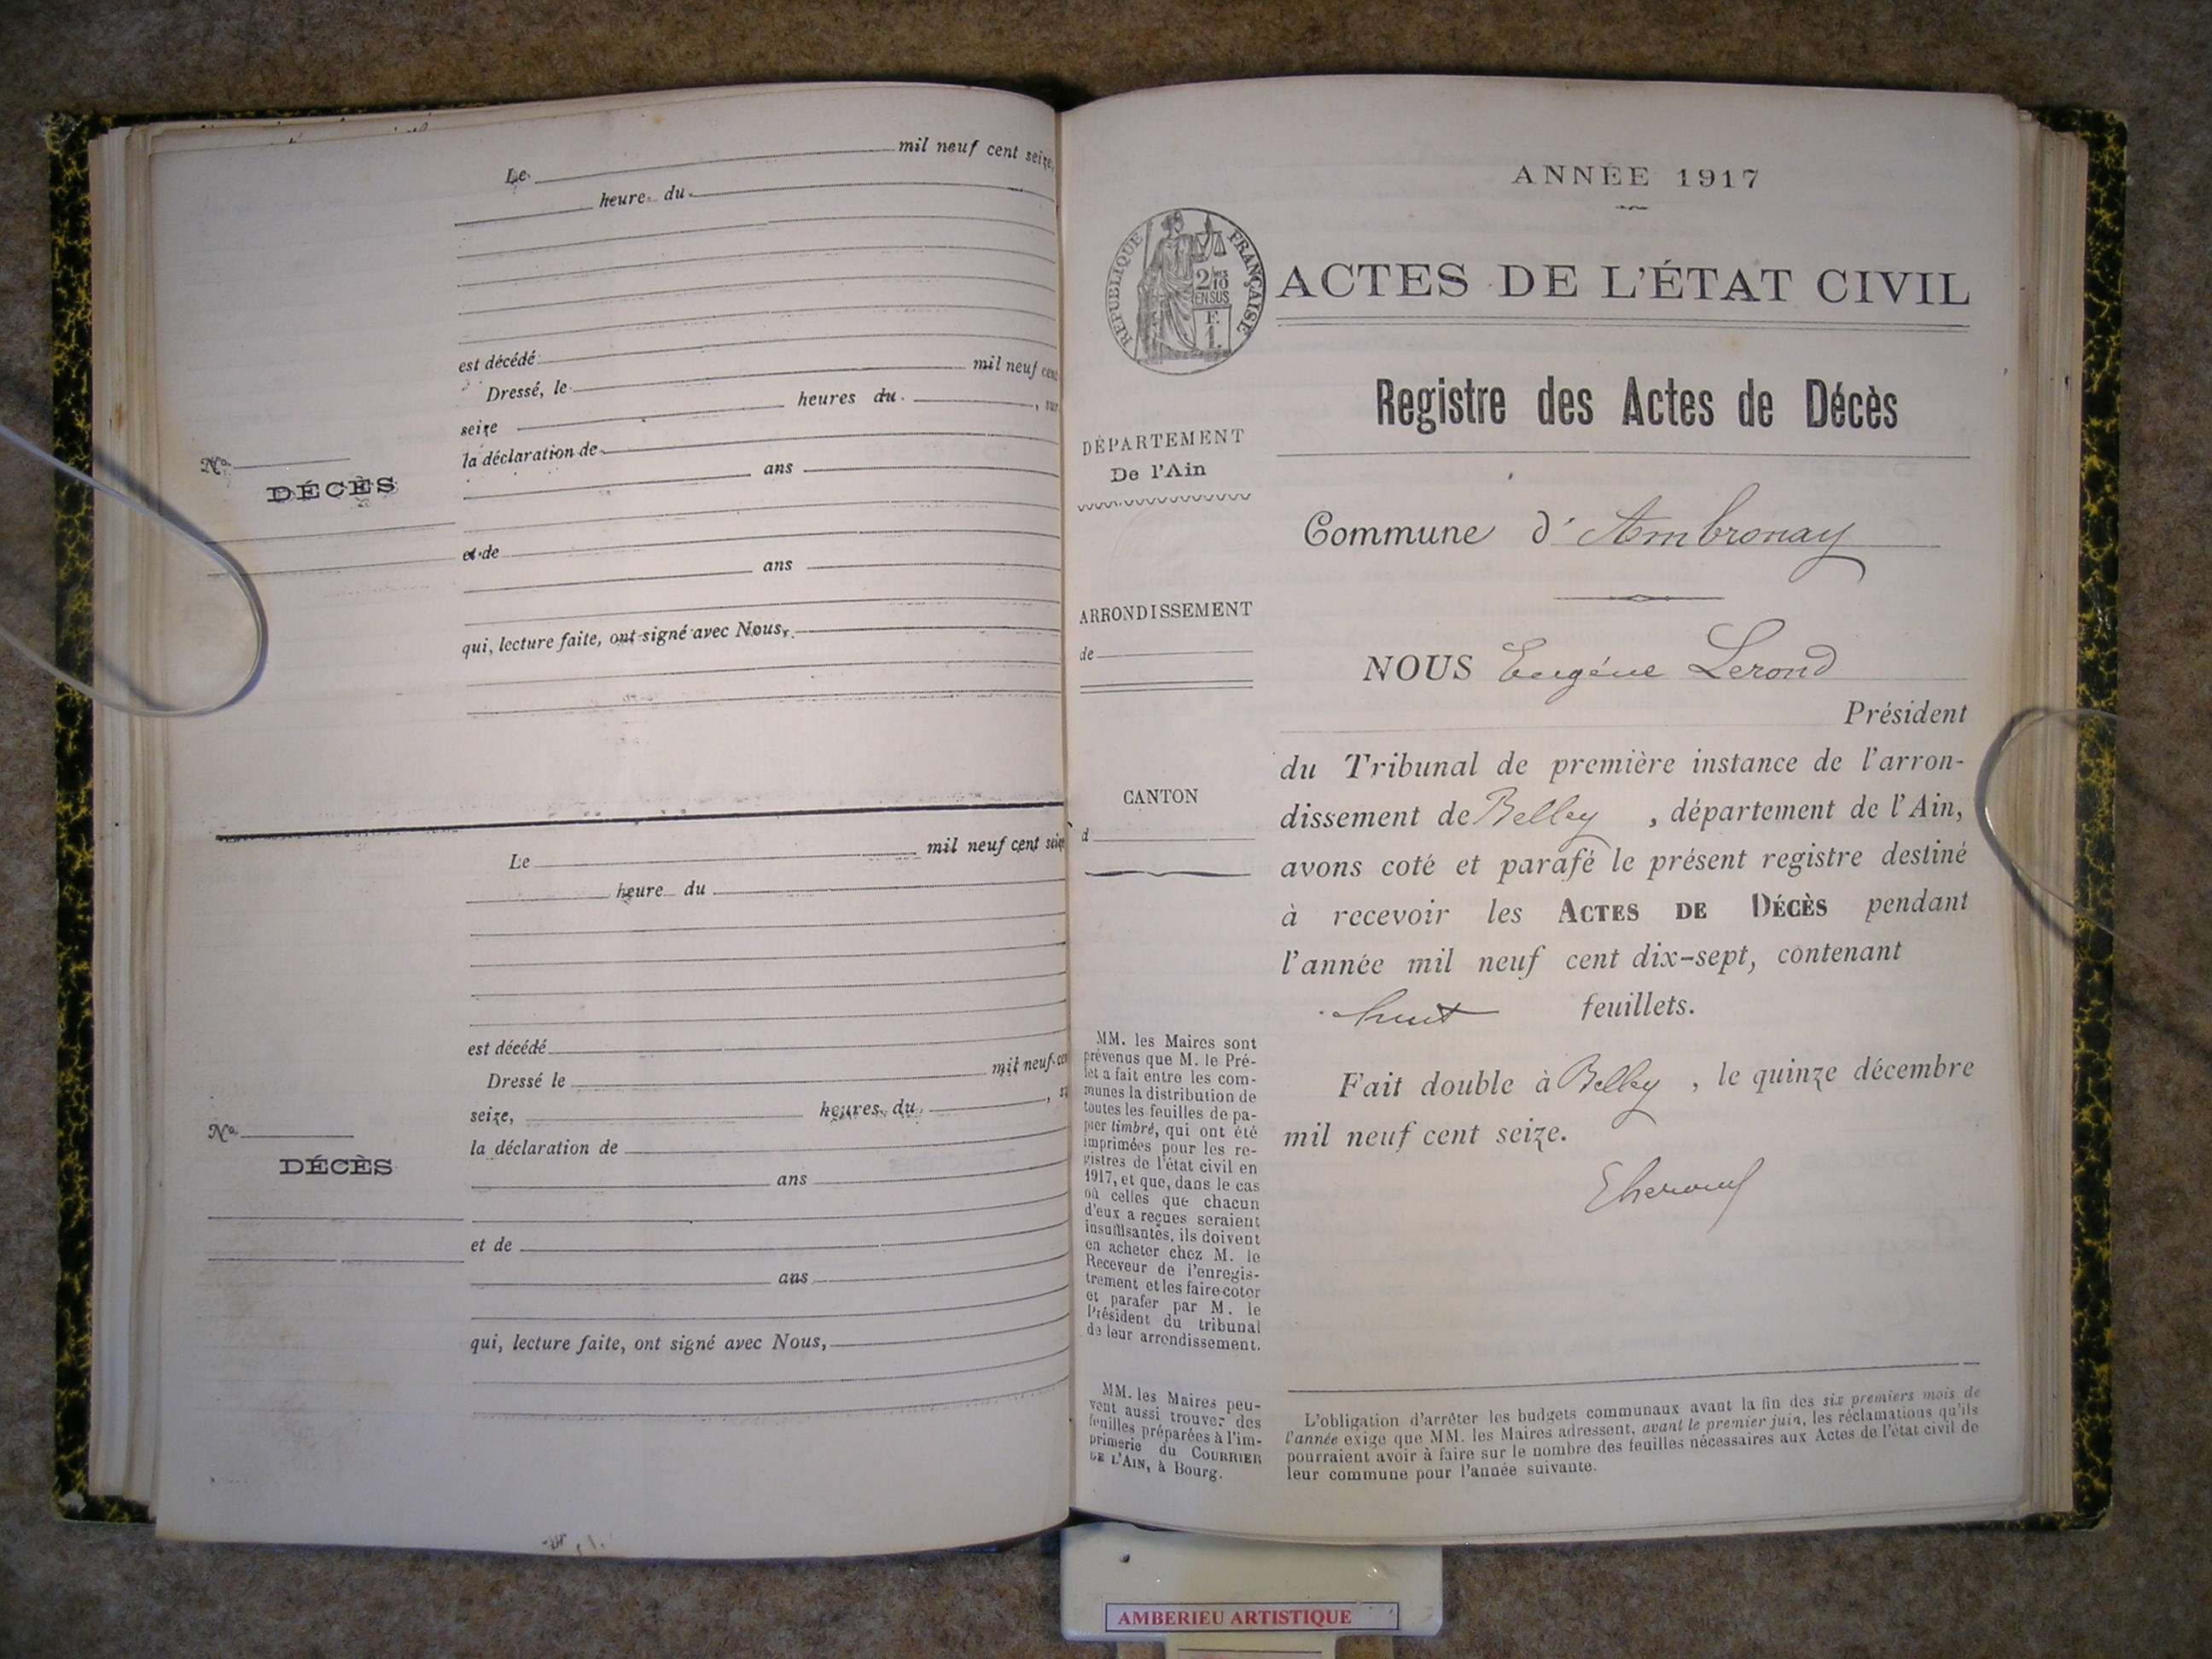 Le mil neuf cent seize,
heure du
est décédé
Dressé, le mil neuf cent
seize heures du , sur
la déclaration de
ans
No
DÉCÈS
et de
ans
qui, lecture faite, ont signé avec Nous,
Le mil neuf cent seize
heure du
est décédé
Dressé le mil neuf cent
seize, heures du ,
la déclaration de
No
DÉCÈS
ans
et de
ans
qui, lecture faite, ont signé avec Nous,
ANNÉE 1917
RÉPUBLIQUE FRANÇAISE
2/10
EN SUS
F.
1.
ACTES DE L'ÉTAT CIVIL
Registre des Actes de Décès
DÉPARTEMENT
De l'Ain
Commune d'Ambronay
ARRONDISSEMENT
de
NOUS Eugène Lerond
Président
du Tribunal de première instance de l'arron-
dissement de Belley , département de l'Ain,
avons coté et parafé le présent registre destiné
à recevoir les ACTES DE DÉCÈS pendant
l'année mil neuf cent dix-sept, contenant
huit feuillets.
Fait double à Belley , le quinze décembre
mil neuf cent seize.
CANTON
d
MM. les Maires sont
prévenus que M. le Pré-
fet a fait entre les com-
munes la distribution de
toutes les feuilles de pa-
pier timbré, qui ont été
imprimées pour les re-
gistres de l'état civil en
1917, et que, dans le cas
où celles que chacun
d'eux a reçues seraient
insuffisantes, ils doivent
en acheter chez M. le
Receveur de l'enregis-
trement et les faire coter
et parafer par M. le
Président du tribunal
de leur arrondissement.
MM. les Maires peu-
vent aussi trouver des
feuilles préparées à l'im-
primerie du COURRIER
DE L'AIN, à Bourg.
L'obligation d'arrêter les budgets communaux avant la fin des six premiers mois de
l'année exige que MM. les Maires adressent, avant le premier juin, les réclamations qu'ils
pourraient avoir à faire sur le nombre des feuilles nécessaires aux Actes de l'état civil de
leur commune pour l'année suivante.
AMBERIEU ARTISTIQUE